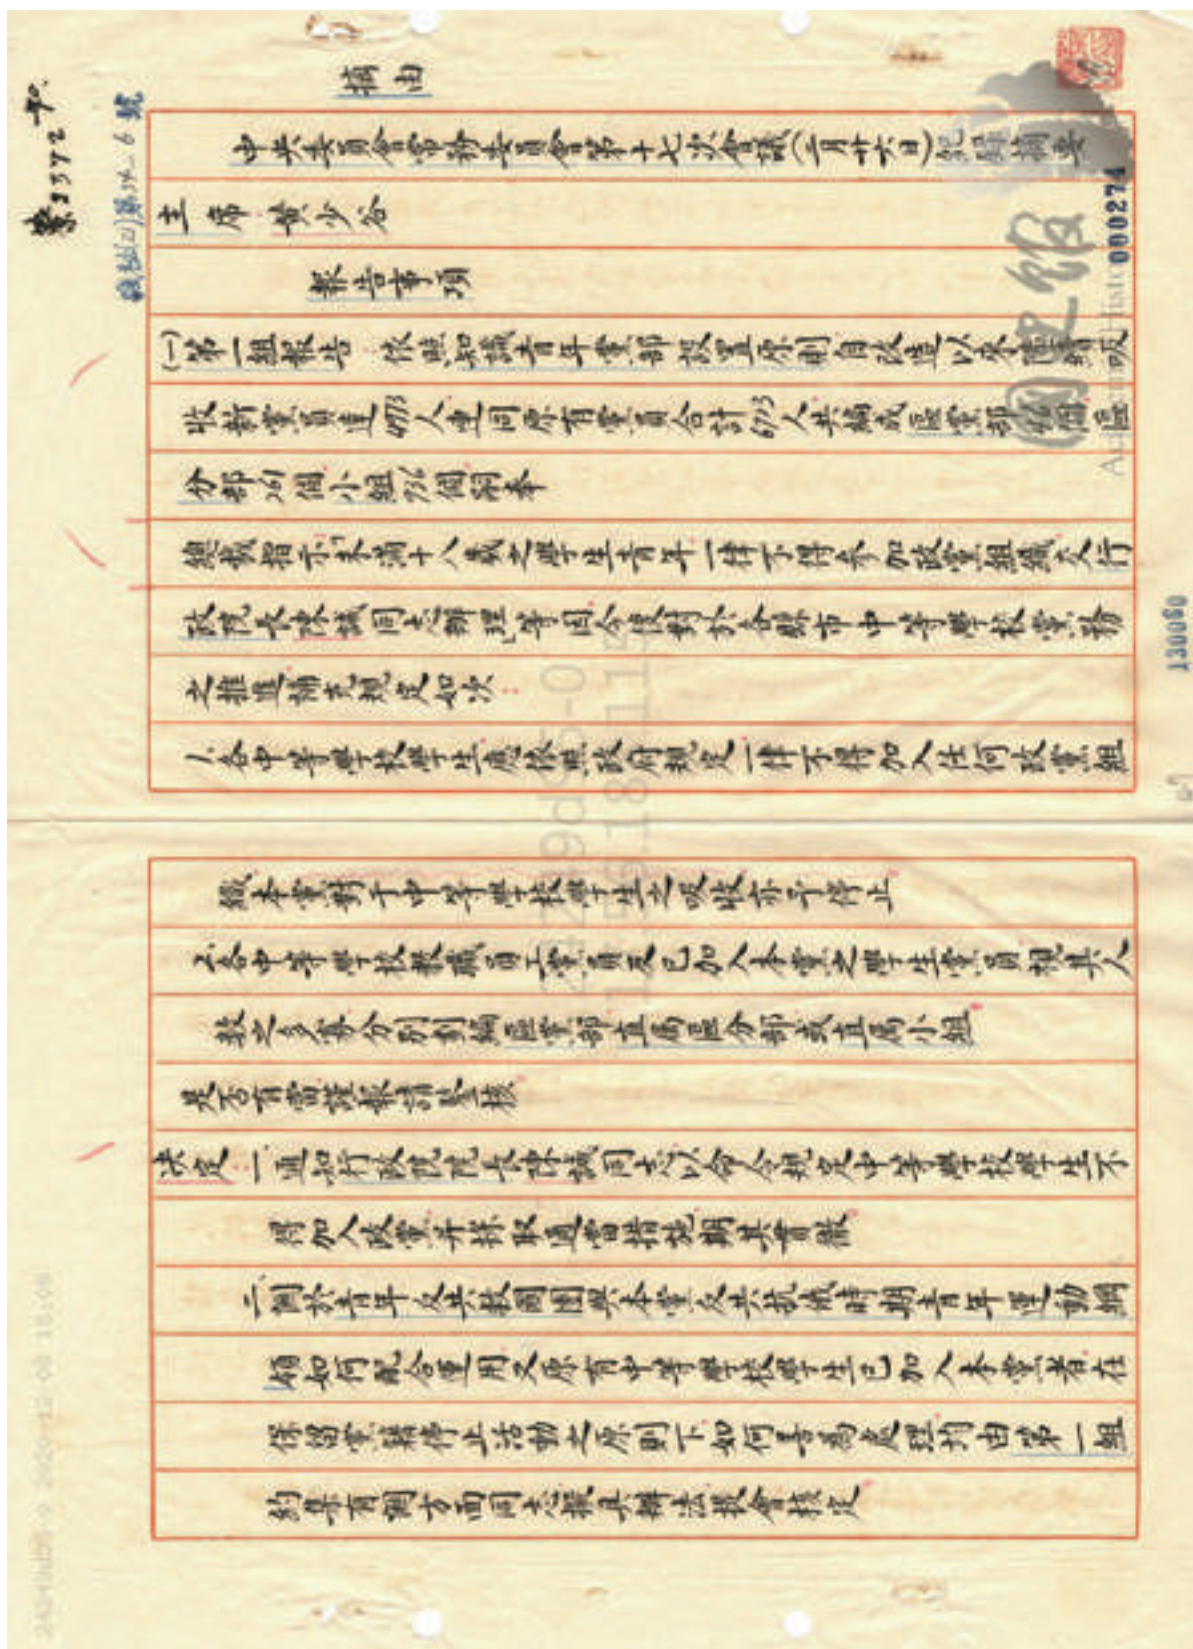 摘由
中央委員會常務委員會第十七次會議(二月廿六日)紀錄摘要
主席 黃少谷
報告事項
(一)第一組報告 依照知識青年黨部設置原則自改造以來陸續吸
收新黨員達4973人連同原有黨員合計6713人共編成區黨部 個區
分部261個小組736個嗣奉
總裁指示「未滿十八歲之學生青年一律不得參加政黨組織交行
政院長陳誠同志辦理」等因今後對於各縣市中等學校黨務
之推進補充規定如次:
1.各中等學校學生應依照政府規定一律不得加入任何政黨組
織本黨對于中等學校學生之吸收亦予停止
2.各中等學校教職員工黨員及已加入本黨之學生黨員視其人
數之多寡分別劃編區黨部直屬區分部或直屬小組
是否有當謹報請鑒核
決定:一通知行政院院長陳誠同志以命令規定中等學校學生不
得加入政黨并採取適當措施期其貫徹
二、關於青年反共救國團與本黨反共抗俄時期青年運動綱
領如何配合運用又原有中等學校學生已加入本黨者在
保留黨籍停止活動之原則下如何善為處理均由第一組
約集有關方面同志擬具辦法報會核定
000274
130080
國史館